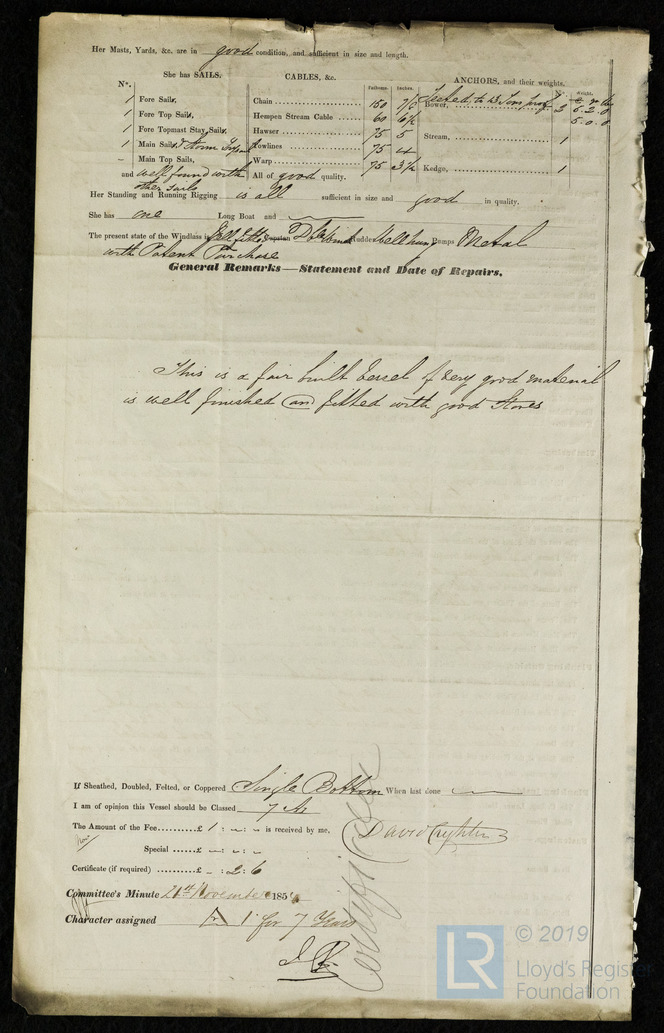 Her Masts, Yards, &c. are in good condition, and sufficient in size and length.
She has SAILS.
CABLES, &c.
Fathoms. Inches.
ANCHORS, and their weights.
Nº. Weight.
Nº.
1 Fore Sails,
1 Fore Top Sails,
1 Fore Topmast Stay Sails,
1 Main Sails, & Storm
– Main Top Sails,
and well found with
other sails
Chain 150
Hempen Stream Cable 60 6½
Hawser 75 5
Towlines 75 4
Warp 75 3½
All of good quality.
Tested to Tons proof
Bower, 2 6.2.0
5.0.0
Stream, 1
Kedge, 1
Her Standing and Running Rigging is all sufficient in size and good in quality.
She has one Long Boat and
The present state of the Windlass is Well fitted Capstan Rudder Well hung Pumps Metal
with Patent Purchase
General Remarks—Statement and Date of Repairs.
This is a fair built Vessel of very good material
is well finished and fitted with good Stores
If Sheathed, Doubled, Felted, or Coppered Single Bottom When last done
I am of opinion this Vessel should be Classed 7 A1
The Amount of the Fee......... £ 1 : – : – is received by me.
Special ...... £ – : – : –
David Crighton
Certificate (if required) ...... £ – : 2 : 6
Committee's Minute 21st November 185
Character assigned A 1 for 7 Years
© 2019
LR
Lloyd's Register
Foundation